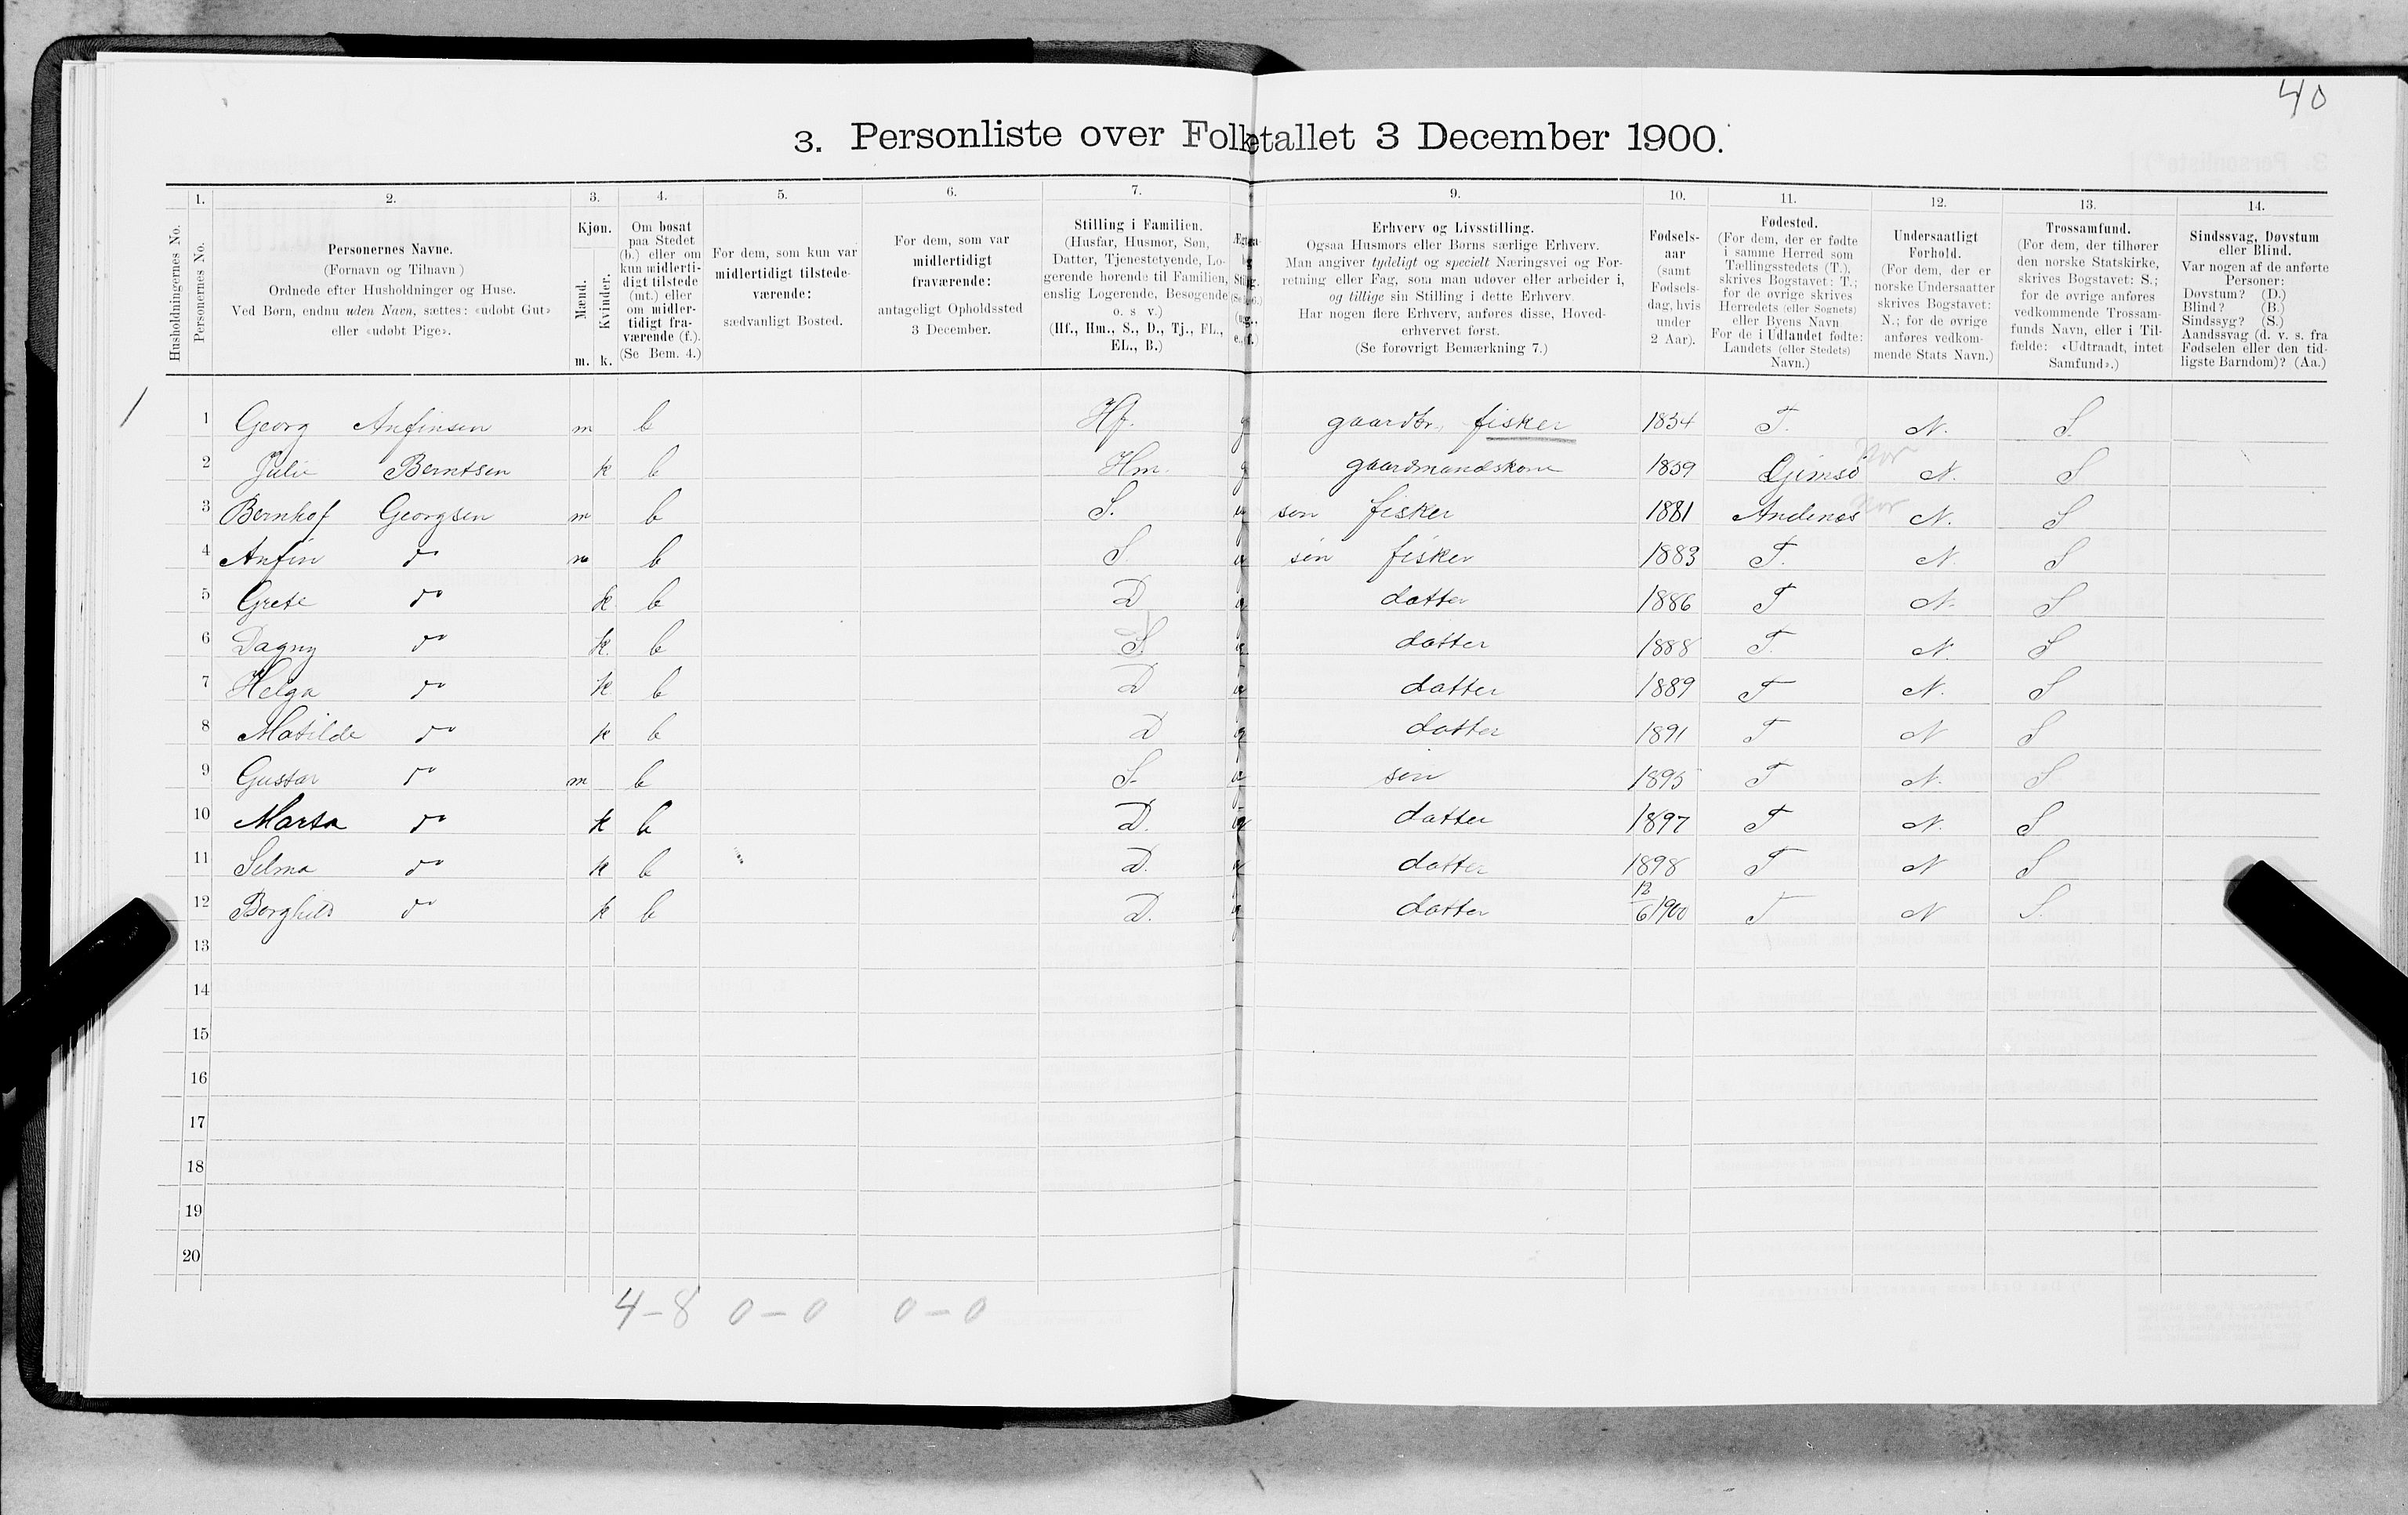 40
3. Personliste over Folketallet 3 December 1900.
1. 2. 3. 4. 5. 6. 7. 9. 10. 11. 12. 13. 14.
Husholdningernes No.
Personernes No.
Personernes Navne.
(Fornavn og Tilnavn)
Ordnede efter Husholdninger og Huse.
Ved Børn, endnu uden Navn, sættes: «udøbt Gut»
eller «udøbt Pige».
Kjøn.
Mænd.
Kvinder.
m. k.
Om bosat
paa Stedet
(b.) eller om
kun midlerti-
digt tilstede
(mt.) eller
om midler-
tidigt fra-
værende (f.).
(Se Bem. 4.)
For dem, som kun var
midlertidigt tilstede-
værende:
sædvanligt Bosted.
For dem, som var
midlertidigt
fraværende:
antageligt Opholdssted
3 December.
Stilling i Familien.
(Husfar, Husmor, Søn,
Datter, Tjenestetyende, Lo-
gerende hørende til Familien,
enslig Logerende, Besøgende
o. s v.)
(Hf., Hm., S., D., Tj., FL.,
EL., B.)
Erhverv og Livsstilling.
Ogsaa Husmors eller Børns særlige Erhverv.
Man angiver tydeligt og specielt Næringsvei og For-
retning eller Fag, som man udøver eller arbeider i,
og tillige sin Stilling i dette Erhverv.
Har nogen flere Erhverv, anføres disse, Hoved-
erhvervet først.
(Se forøvrigt Bemærkning 7.)
Fødsels-
aar
(samt
Fødsels-
dag, hvis
under
2 Aar).
Fødested.
(For dem, der er fødte
i samme Herred som
Tællingsstedets (T.),
skrives Bogstavet: T.;
for de øvrige skrives
Herredets (eller Sognets)
eller Byens Navn
For de i Udlandet fødte:
Landets (eller Stedets)
Navn.)
Undersaatligt
Forhold.
(For dem, der er
norske Undersaatter
skrives Bogstavet:
N.; for de øvrige
anføres vedkom-
mende Stats Navn.)
Trossamfund.
(For dem, der tilhører
den norske Statskirke,
skrives Bogstavet: S.;
for de øvrige anføres
vedkommende Trossam-
funds Navn, eller i Til-
fælde: «Udtraadt, intet
Samfund».)
Sindssvag, Døvstum
eller Blind.
Var nogen af de anførte
Personer:
Døvstum? (D.)
Blind? (B.)
Sindssyg? (S.)
Aandssvag (d. v. s. fra
Fødselen eller den tid-
ligste Barndom)? (Aa.)
1 1 Georg Anfinsen m b Hf. g gaardbr. fisker 1854 T. N. S.
2 Julie Berntsen k b Hm. g gaardmandskone 1859 Gimsø Nor N. S
3 Bernhof Georgsen m b S. u søn fisker 1881 Andenes Nor N. S
4 Anfin do m b S. u søn fisker 1883 T. N. S
5 Grete do k b D u datter 1886 T N. S
6 Dagny do k. b S. u datter 1888 T. N. S
7 Helga do k b D u datter 1889 T N. S
8 Matilde do k b D u datter 1891 T N S
9 Gustav do m b S. u søn 1895 T N. S
10 Marta do k b D. u datter 1897 T N. S
11 Selma do k b D. u datter 1898 T N S
12 Borghild do k b D. u datter 12/6 1900 T N S.
13
14
15
16
17
18
19
20
4 – 8 0 – 0 0 – 0